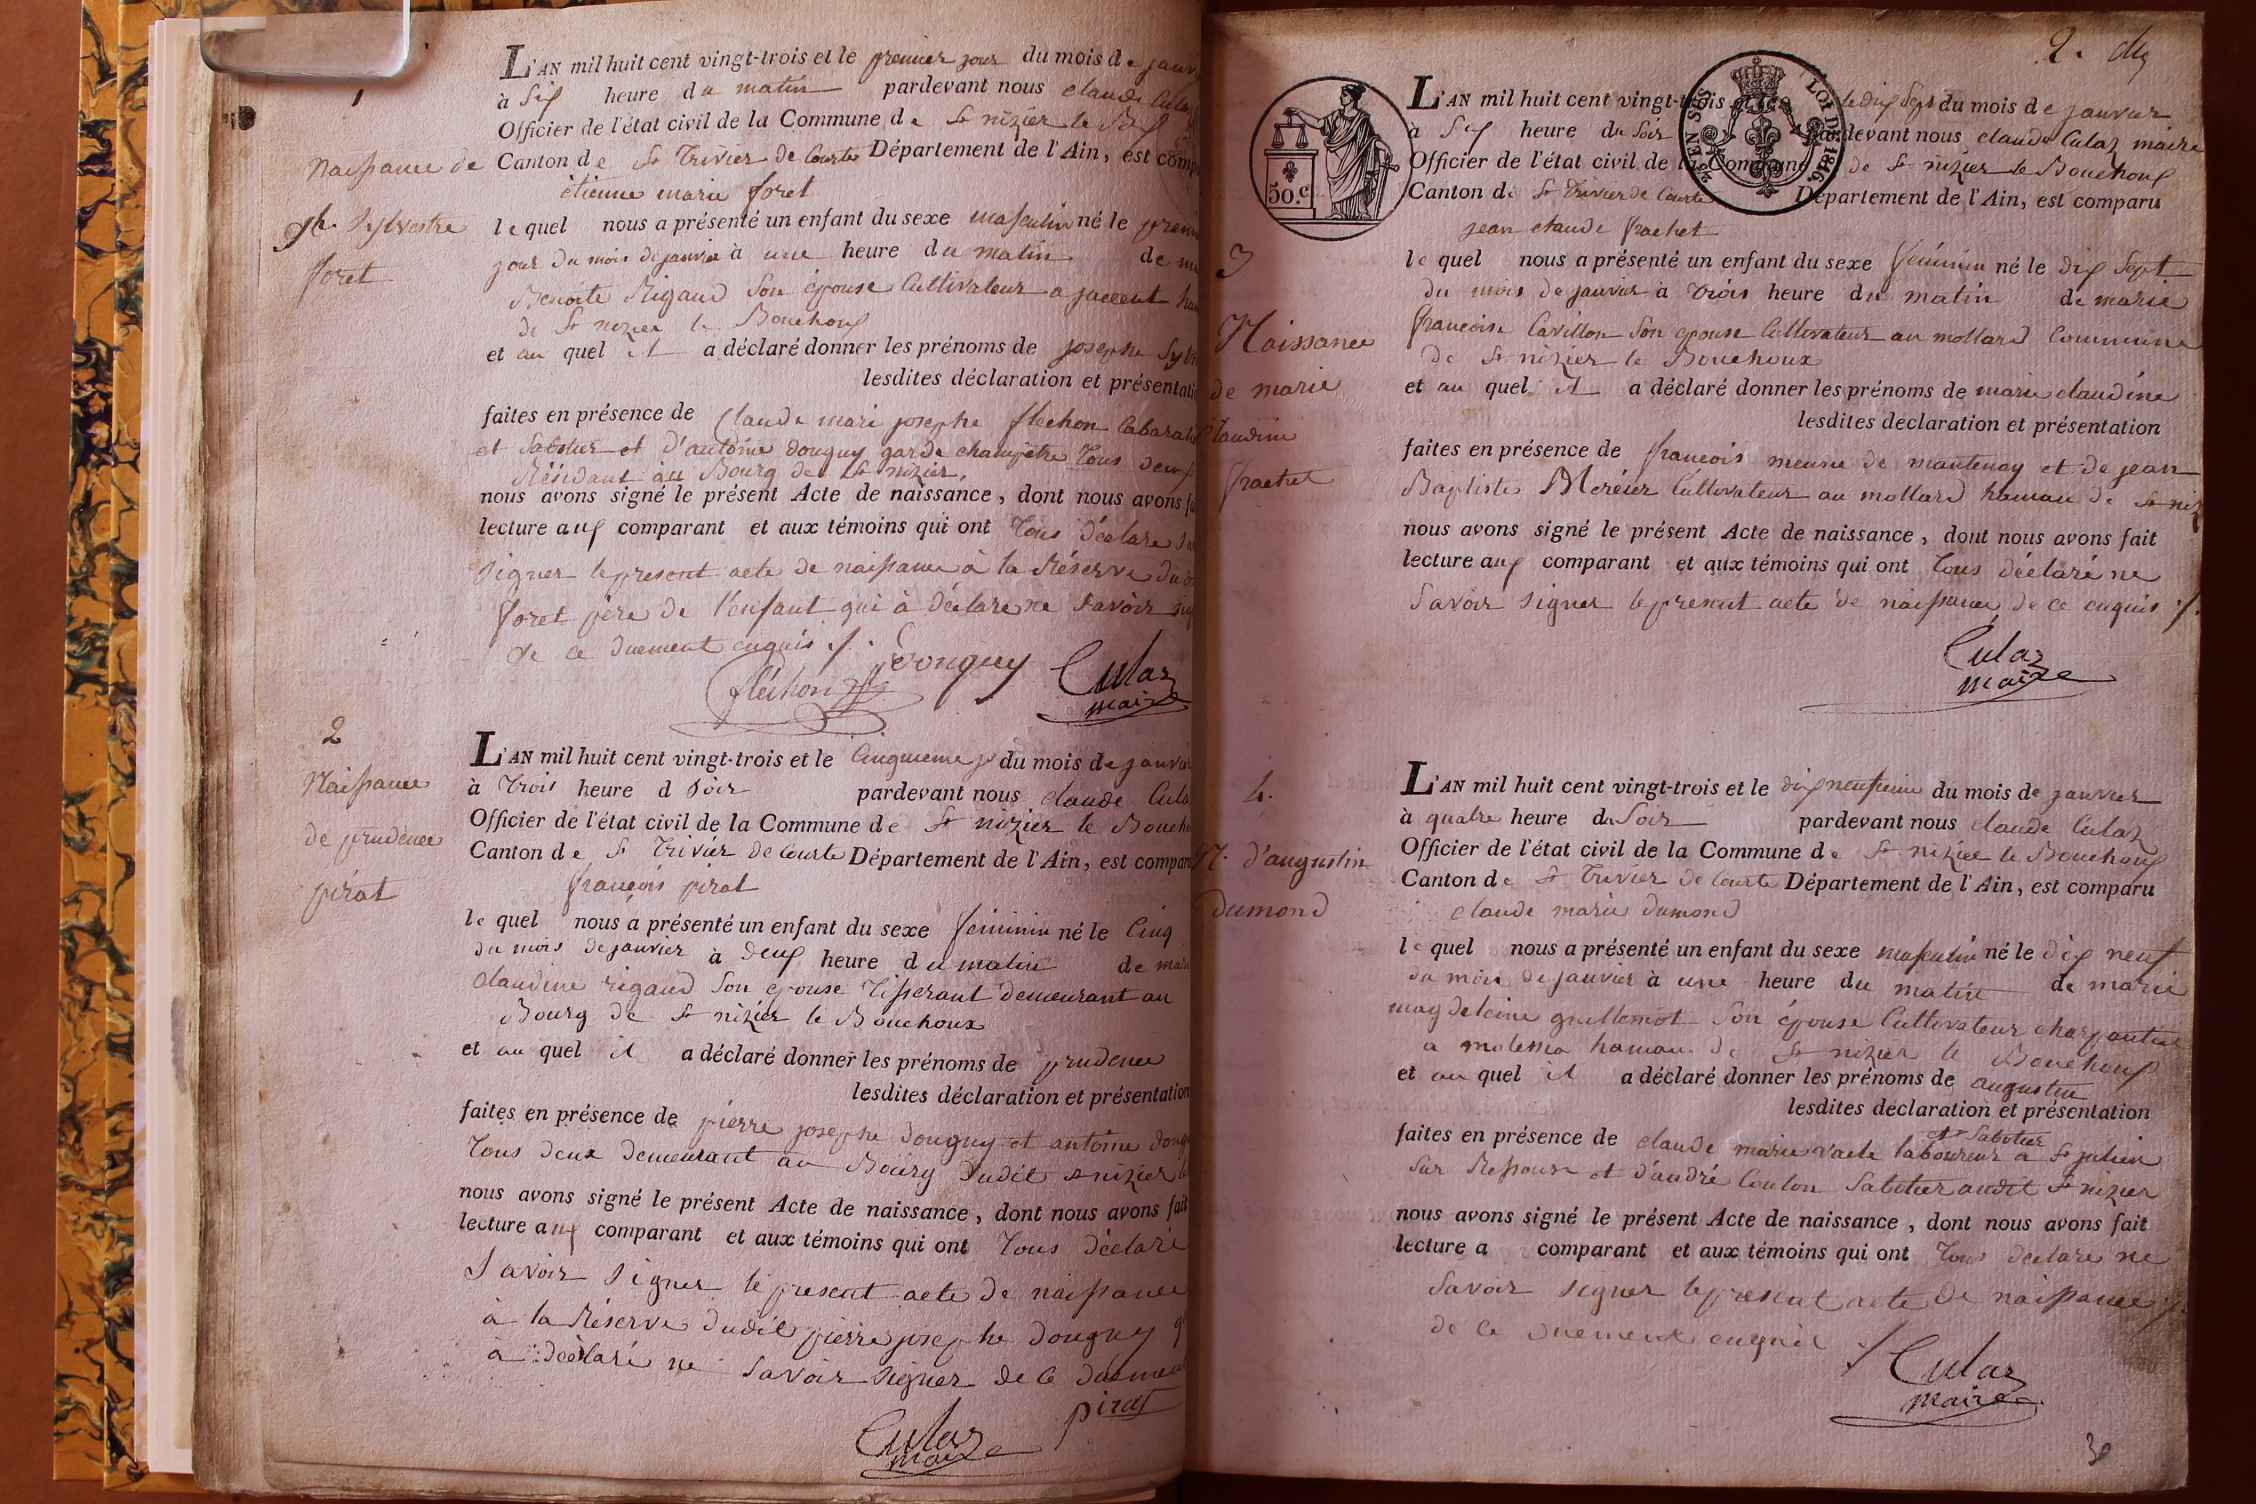 1
Naissance de
jh. Sylvestre
foret
L'AN mil huit cent vingt-trois et le premier jour du mois de janv
à six heure du matin pardevant nous claude Culaz
Officier de l'état civil de la Commune de St nizier le
Canton de St Trivier de Courtes Département de l'Ain, est comp
étienne marie foret
lequel nous a présenté un enfant du sexe masculin né le premi
jour du mois de janvier à une heure du matin de
Benoite Rigaud son épouse Cultivateur a
de St nizier le Bouchoux
et au quel il a déclaré donner les prénoms de josephe Sylv
lesdites déclaration et présentati
faites en présence de Claude mari josephe flechon
et Sabotier et d'antoine douguy garde champêtre Tous deux
Résidant au Bourg de St nizier,
nous avons signé le présent Acte de naissance, dont nous avons fa
lecture aux comparant et aux témoins qui ont Tous déclare
signer le present acte de naissance à la Réserve du
foret père de l'enfant qui à déclare ne savoir sig
de ce duement enquis ./.
flechon Douguy Culaz
maire
2
Naissance
de prudence
pirat
L'AN mil huit cent vingt-trois et le Cinquieme jr du mois de janvie
à Trois heure d soir pardevant nous claude Cula
Officier de l'état civil de la Commune de St nizier le Boucho
Canton de St Trivier de Courte Département de l'Ain, est compar
françois pirat
lequel nous a présenté un enfant du sexe féminin né le Cinq
du mois de janvier à deux heure du matin de mari
claudine rigaud son epouse Tisserant demeurant au
Bourg de St nizier le Bouchoux
et au quel il a déclaré donner les prénoms de prudence
lesdites déclaration et présentation
faites en présence de pierre josephe douguy et antoine doug
Tous deux demeurant au Bourg dudit st nizier
nous avons signé le présent Acte de naissance, dont nous avons fait
lecture aux comparant et aux témoins qui ont Tous déclaré
Savoir signer le present acte de naissance
à la Réserve dudit pierre josephe douguy q
à déclaré ne savoir signer de ce dueme
pirat
Culaz
maire
2.
50.C
25 EN SUS
LOI DE 1816.
3
Naissance
de marie
Claudine
frachet
L'AN mil huit cent vingt-trois et le dix sept du mois de janvier
à six heure du soir pardevant nous claude Culaz maire
Officier de l'état civil de la Commune de St nizier le Bouchoux
Canton de St Trivier de Courte Département de l'Ain, est comparu
jean claude frachet
lequel nous a présenté un enfant du sexe féminin né le dix sept
du mois de janvier à trois heure du matin de marie
francoise Cavillon son epouse Cultivateur au mollard Commune
de St nizier le Bouchoux
et au quel il a déclaré donner les prénoms de marie claudine
lesdites declaration et présentation
faites en présence de francois meunie de mantenay et de jean
Baptiste Mercier Cultivateur au mollard hamau de St niz
nous avons signé le présent Acte de naissance, dont nous avons fait
lecture aux comparant et aux témoins qui ont Tous déclaré ne
Savoir signer le present acte de naissance de ce enquis ./.
Culaz
maire
4.
N. d'augustin
dumond
L'AN mil huit cent vingt-trois et le dix neufieme du mois de janvier
à quatre heure du soir pardevant nous claude Culaz
Officier de l'état civil de la Commune de St nizier le Bouchoux
Canton de St Trivier de Courte Département de l'Ain, est comparu
claude marie dumond
lequel nous a présenté un enfant du sexe masculin né le dix neuf
du mois de janvier à une heure du matin de marie
magdeleine guillemot son épouse Cultivateur charpantier
a hamau de St nizier le Bouchoux
et au quel il a déclaré donner les prénoms de augustin
lesdites declaration et présentation
et Sabotier
faites en présence de claude marie laboureur a St julien
Sur Ressouse et d'andré Coulon Sabotier audit St nizier
nous avons signé le présent Acte de naissance, dont nous avons fait
lecture a comparant et aux témoins qui ont Tous declare ne
Savoir signer le present acte de naissance ./.
de ce duement enquis ./.
Culaz
maire